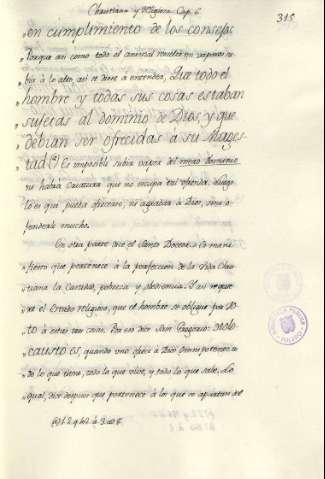 Christiana y Religiosa Cap. 6
315
"en cumplimiento de los consejos
Porque asi como todo el animal resuelto en vapores su-
bia a lo alto, asi se diese a entender, Que todo el
hombre y todas sus cosas estaban
sujetas al dominio de Dios, y que
debian ser ofrecidas à su Mages-
tad (*) Es imposible subir vapor del
ni habia Creatura que no ocupa tal ofrenda. Luego
lo es que pueda ofrecerse, ni agradara à Dios, sino
fenderle mucho.
En otra parte dice el Santo Doctor: Es mani-
fiesto que pertenece à la perfeccion de la Vida Chris-
tiana la Caridad, pobreza y abstinencia. Y asi requie-
re el Estado religioso, que el hombre se obligue por Vo-
to à estas tres cosas. Por eso dice San Gregorio: Holo-
causto es, quando uno ofrece à Dios Omnipotente to-
do lo que tiene, todo lo que vive, y todo lo que sabe. Lo
qual, dice despues que pertenece à los que se apartan del